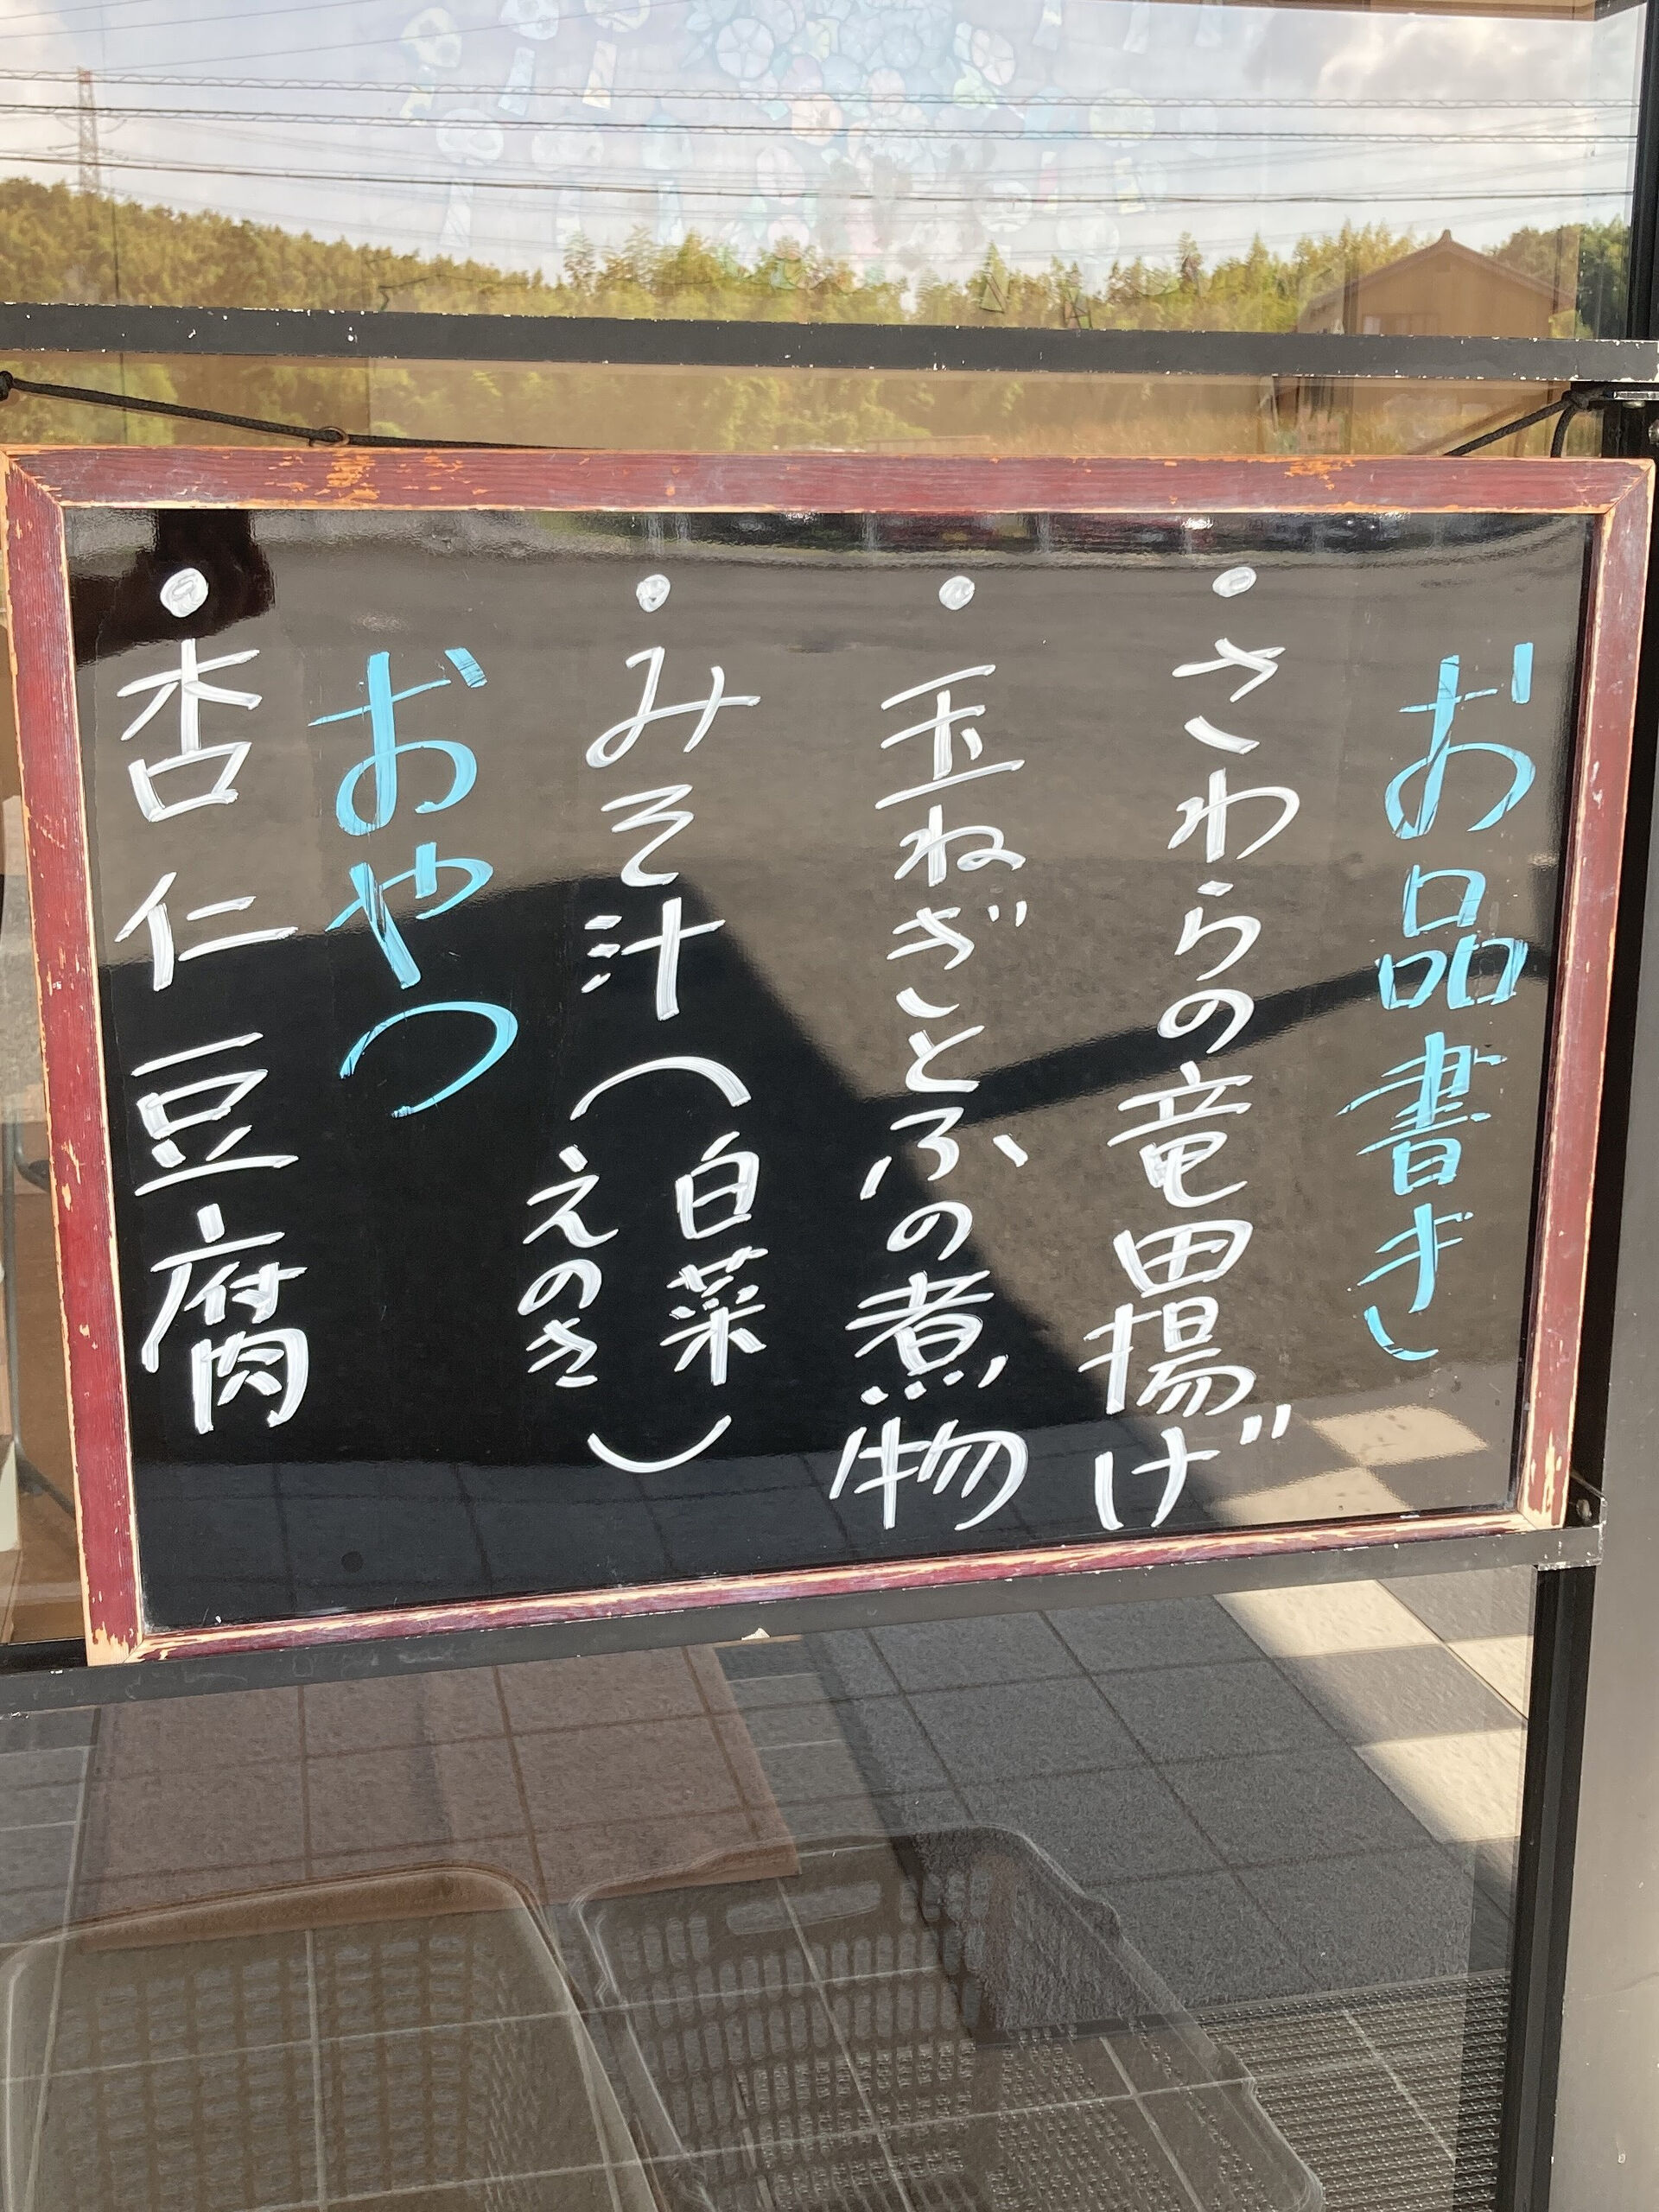 お品書き
・さわらの竜田揚げ
・玉ねぎとふの煮物
・みそ汁(白菜
えのき)
おやつ
・杏仁豆腐